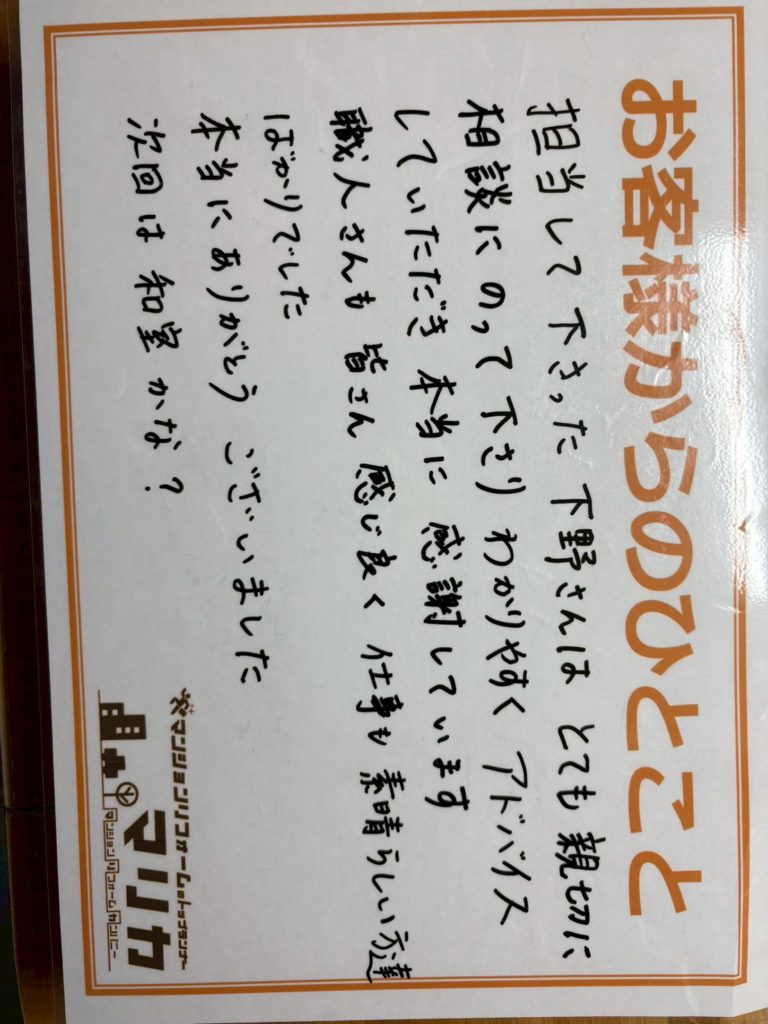 お客様からのひとこと
担当して下さった下野さんは とても親切に
相談にのって下さり わかりやすく アドバイス
していただき 本当に 感謝しています
職人さんも 皆さん 感じ良く 仕事も 素晴らしい方達
ばかりでした
本当にありがとう ございました
次回は 和室 かな?
マンションリフォームのトップランナー
マリカ
マンションリフォームカンパニー